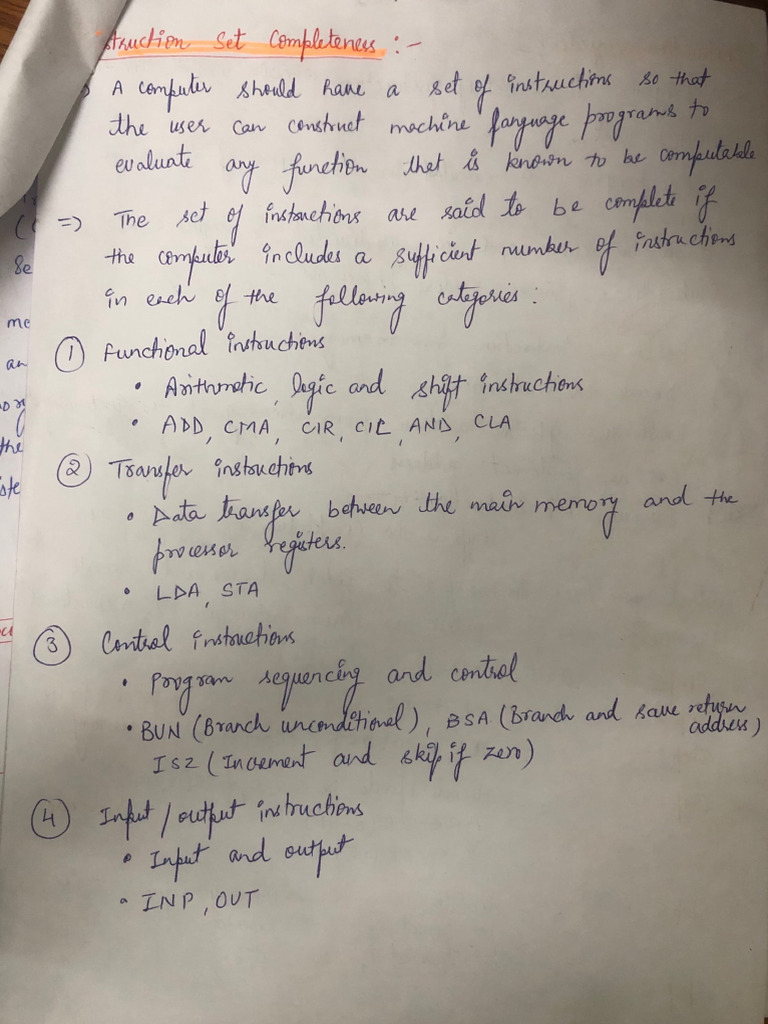 struction Set Completeness :-
A computer should have a set of instructions so that
the user can construct machine language programs to
evaluate any function that is known to be computable
=) The set of instructions are said to be complete if
the computer includes a sufficient number of instructions
in each of the following categories :
1 Functional instructions
• Arithmetic, logic and shift instructions
• ADD, CMA, CIR, CIL, AND, CLA
2 Transfer instructions
• Data transfer between the main memory and the
processor registers.
• LDA, STA
3 Control instructions
• Program sequencing and control
• BUN (Branch unconditional), BSA (Branch and save return
address)
ISZ (Increment and skip if zero)
4 Input / output instructions
• Input and output
• INP, OUT
(
Se
me
an
the